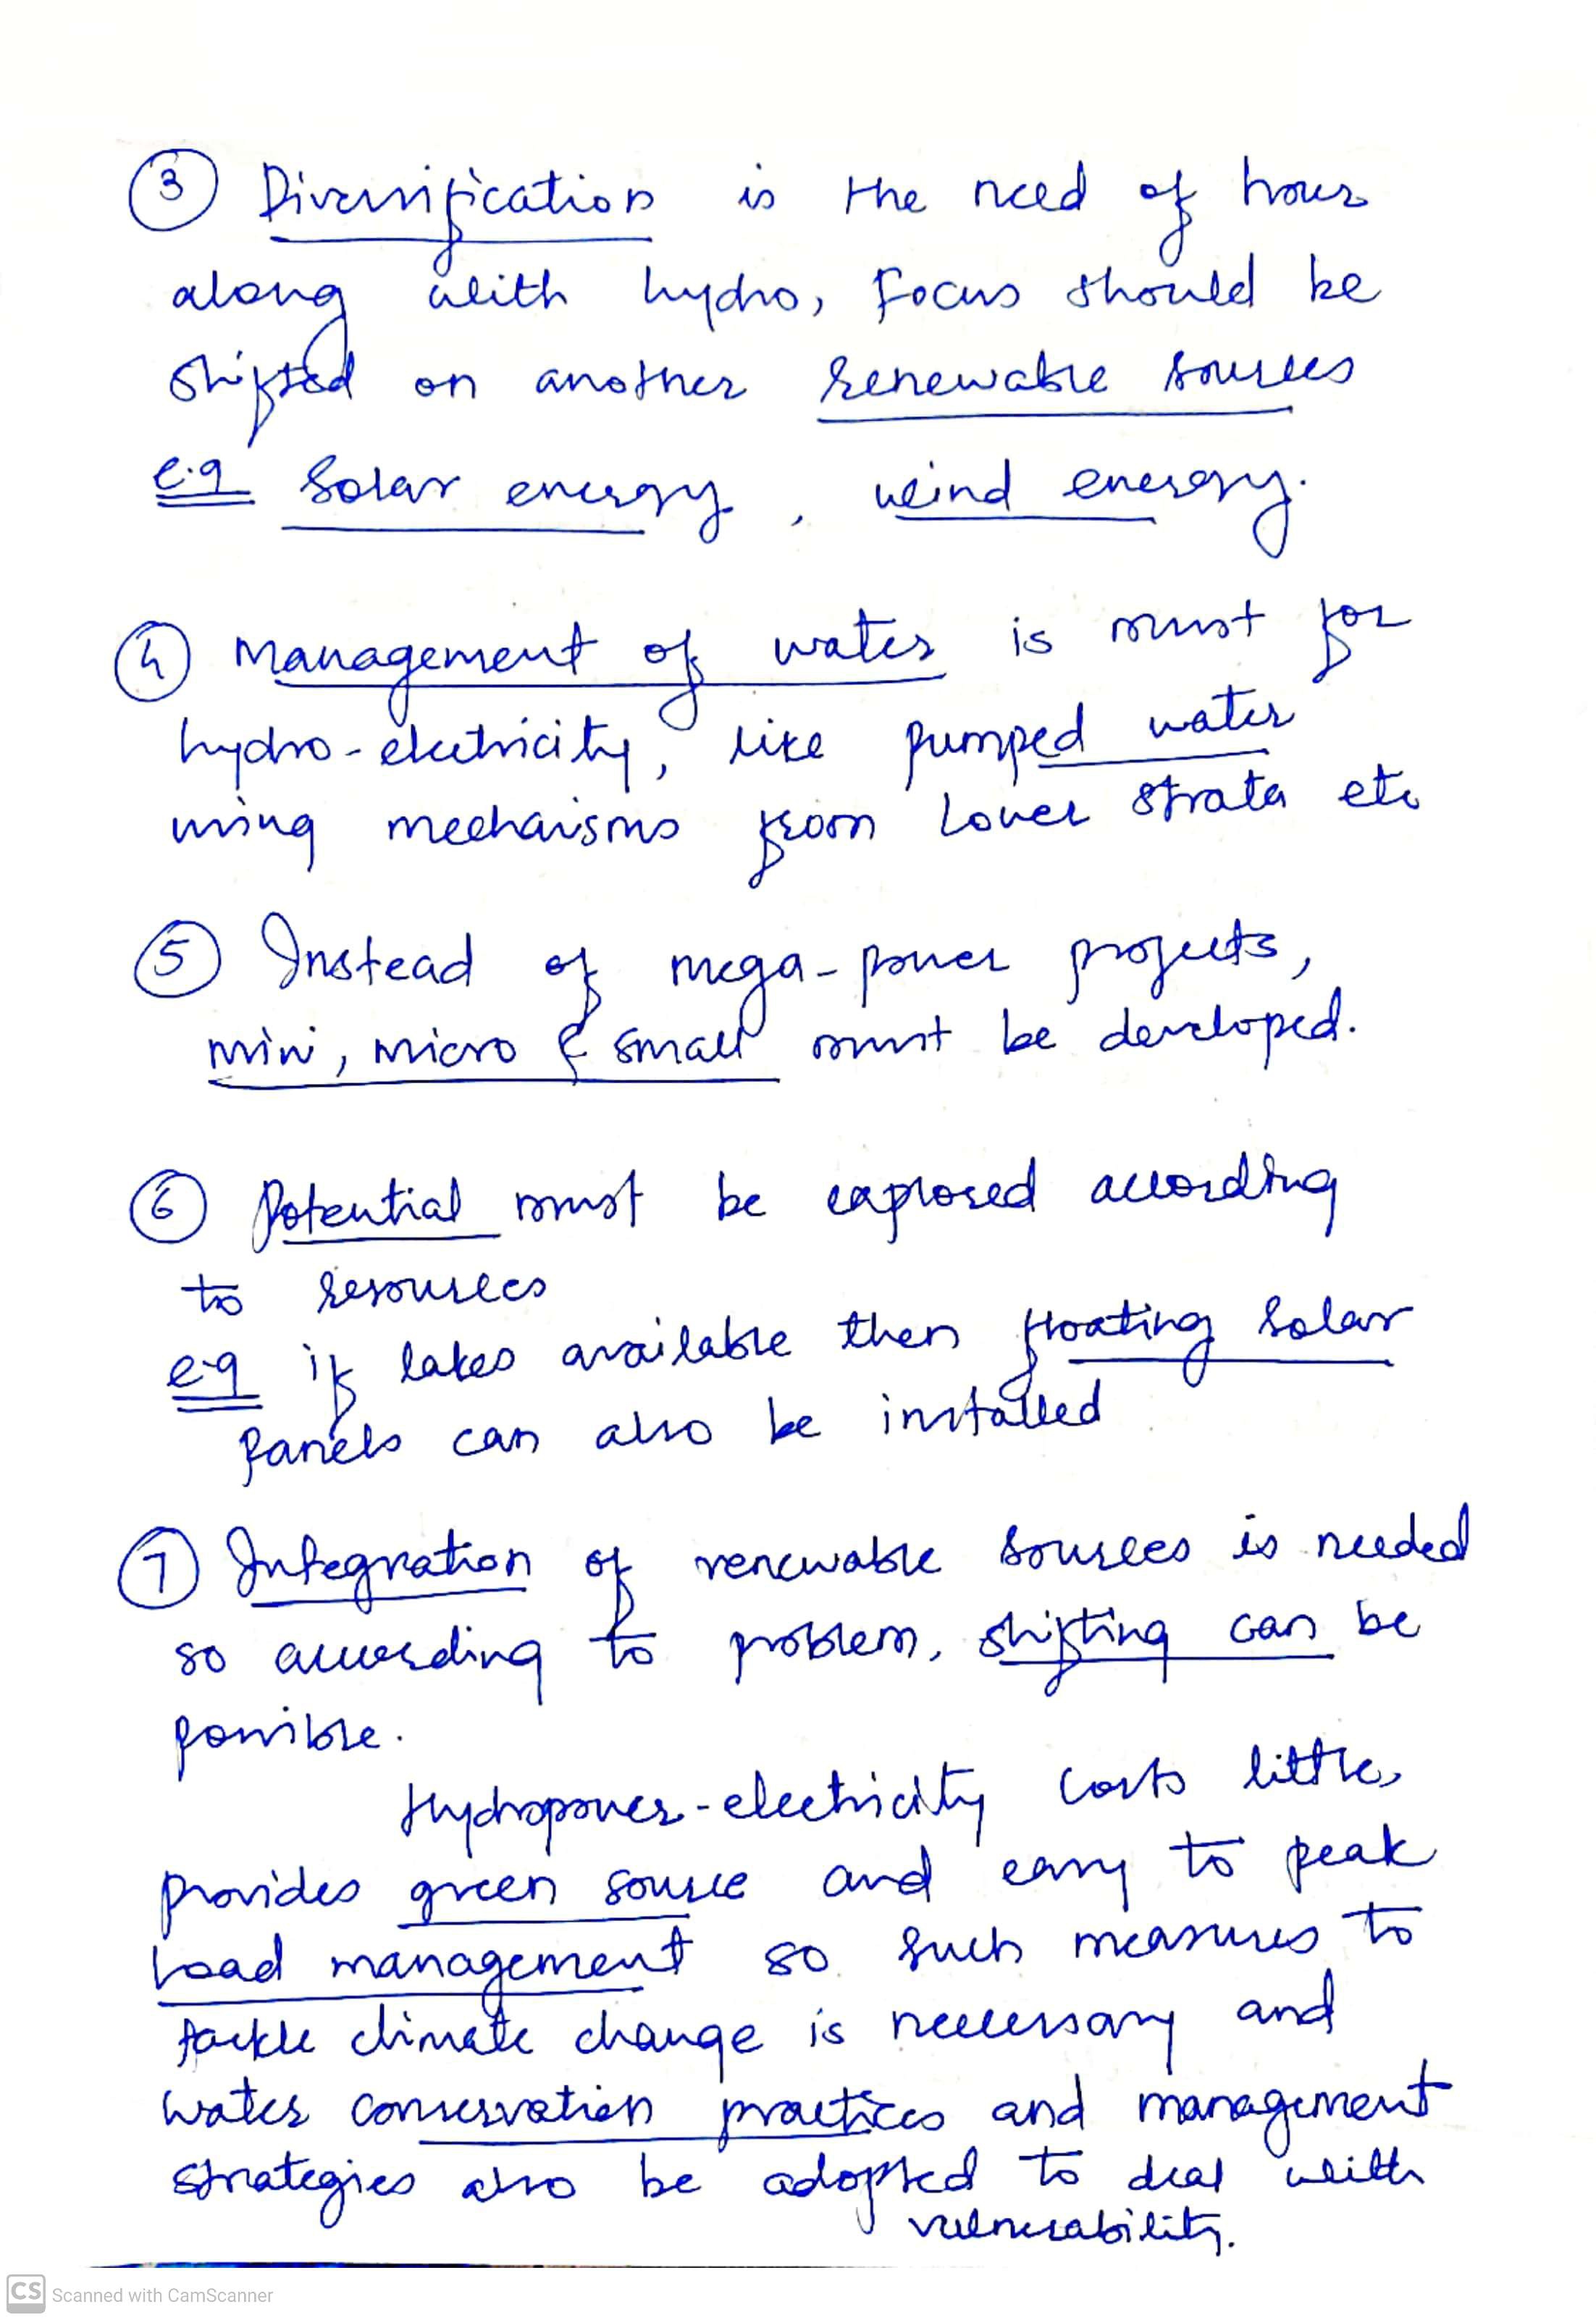 ③ Diversification is the need of hour
along with hydro, focus should be
shifted on another renewable sources
e.g Solar energy, wind energy.
④ Management of water is must for
hydro-electricity, like pumped water
using mechaisms from lower strata etc
⑤ Instead of mega-power projects,
mini, micro & small must be developed.
⑥ Potential must be explored according
to resources
e.g if lakes available then floating solar
panels can also be installed
⑦ Integration of renewable sources is needed
so according to problem, shifting can be
possible.
Hydropower-electricity costs little,
provides green source and easy to peak
load management so such measures to
tackle climate change is necessary and
water conservation practices and management
strategies also be adopted to deal with
vulnerability.
CS Scanned with CamScanner